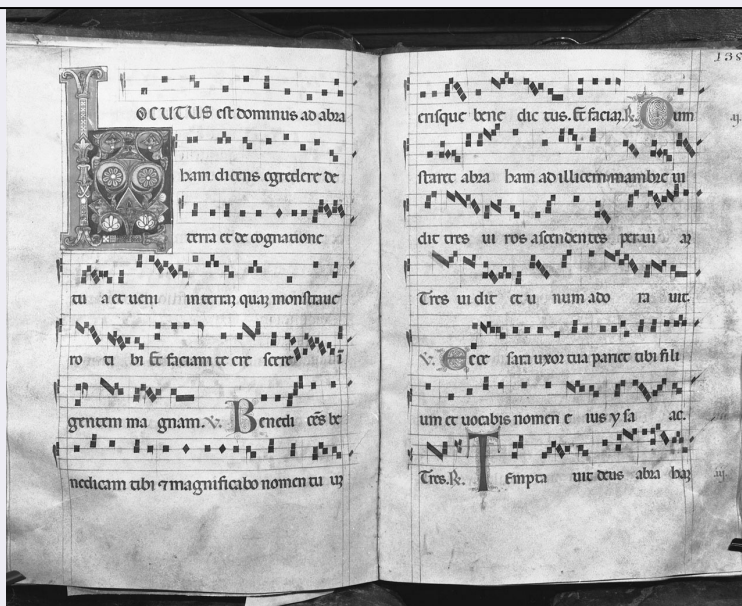 LOCUTUS est dominus ad abra
ham dicens egredere de
terra et de cognatione
tu a et ueni in terraꝫ quaꝫ monstraue
ro ti bi Et faciam te cre scere ī
gentem ma gnam. ℣. Benedi cēs be
nedicam tibi ⁊ magnificabo nomen tu uꝫ
138
erisque bene dic tus. Et faciaꝫ. ℟. Dum
staret abra ham ad illicem mambre ui
dit tres ui ros ascendentes per ui aꝫ
Tres ui dit et u num ado ra uit.
℣. Ecce sara uxor tua pariet tibi fili
um et uocabis nomen e ius y sa ac.
Tres. ℟. Tempta uit deus abra haꝫ